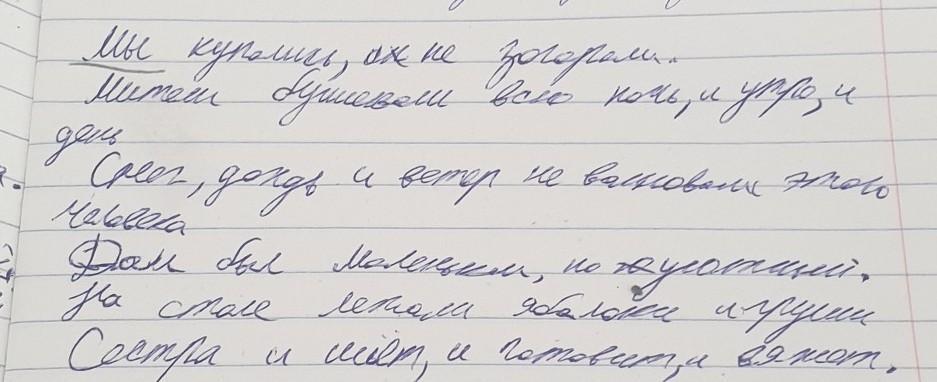 Мы купались, но не загорали.
Метели бушевали всю ночь, и утро, и
день
Снег, дождь и ветер не волновали этого
человека
Дом был маленьким, но
На столе лежали яблоки и груши
Сестра и шьёт, и готовит, и вяжет.